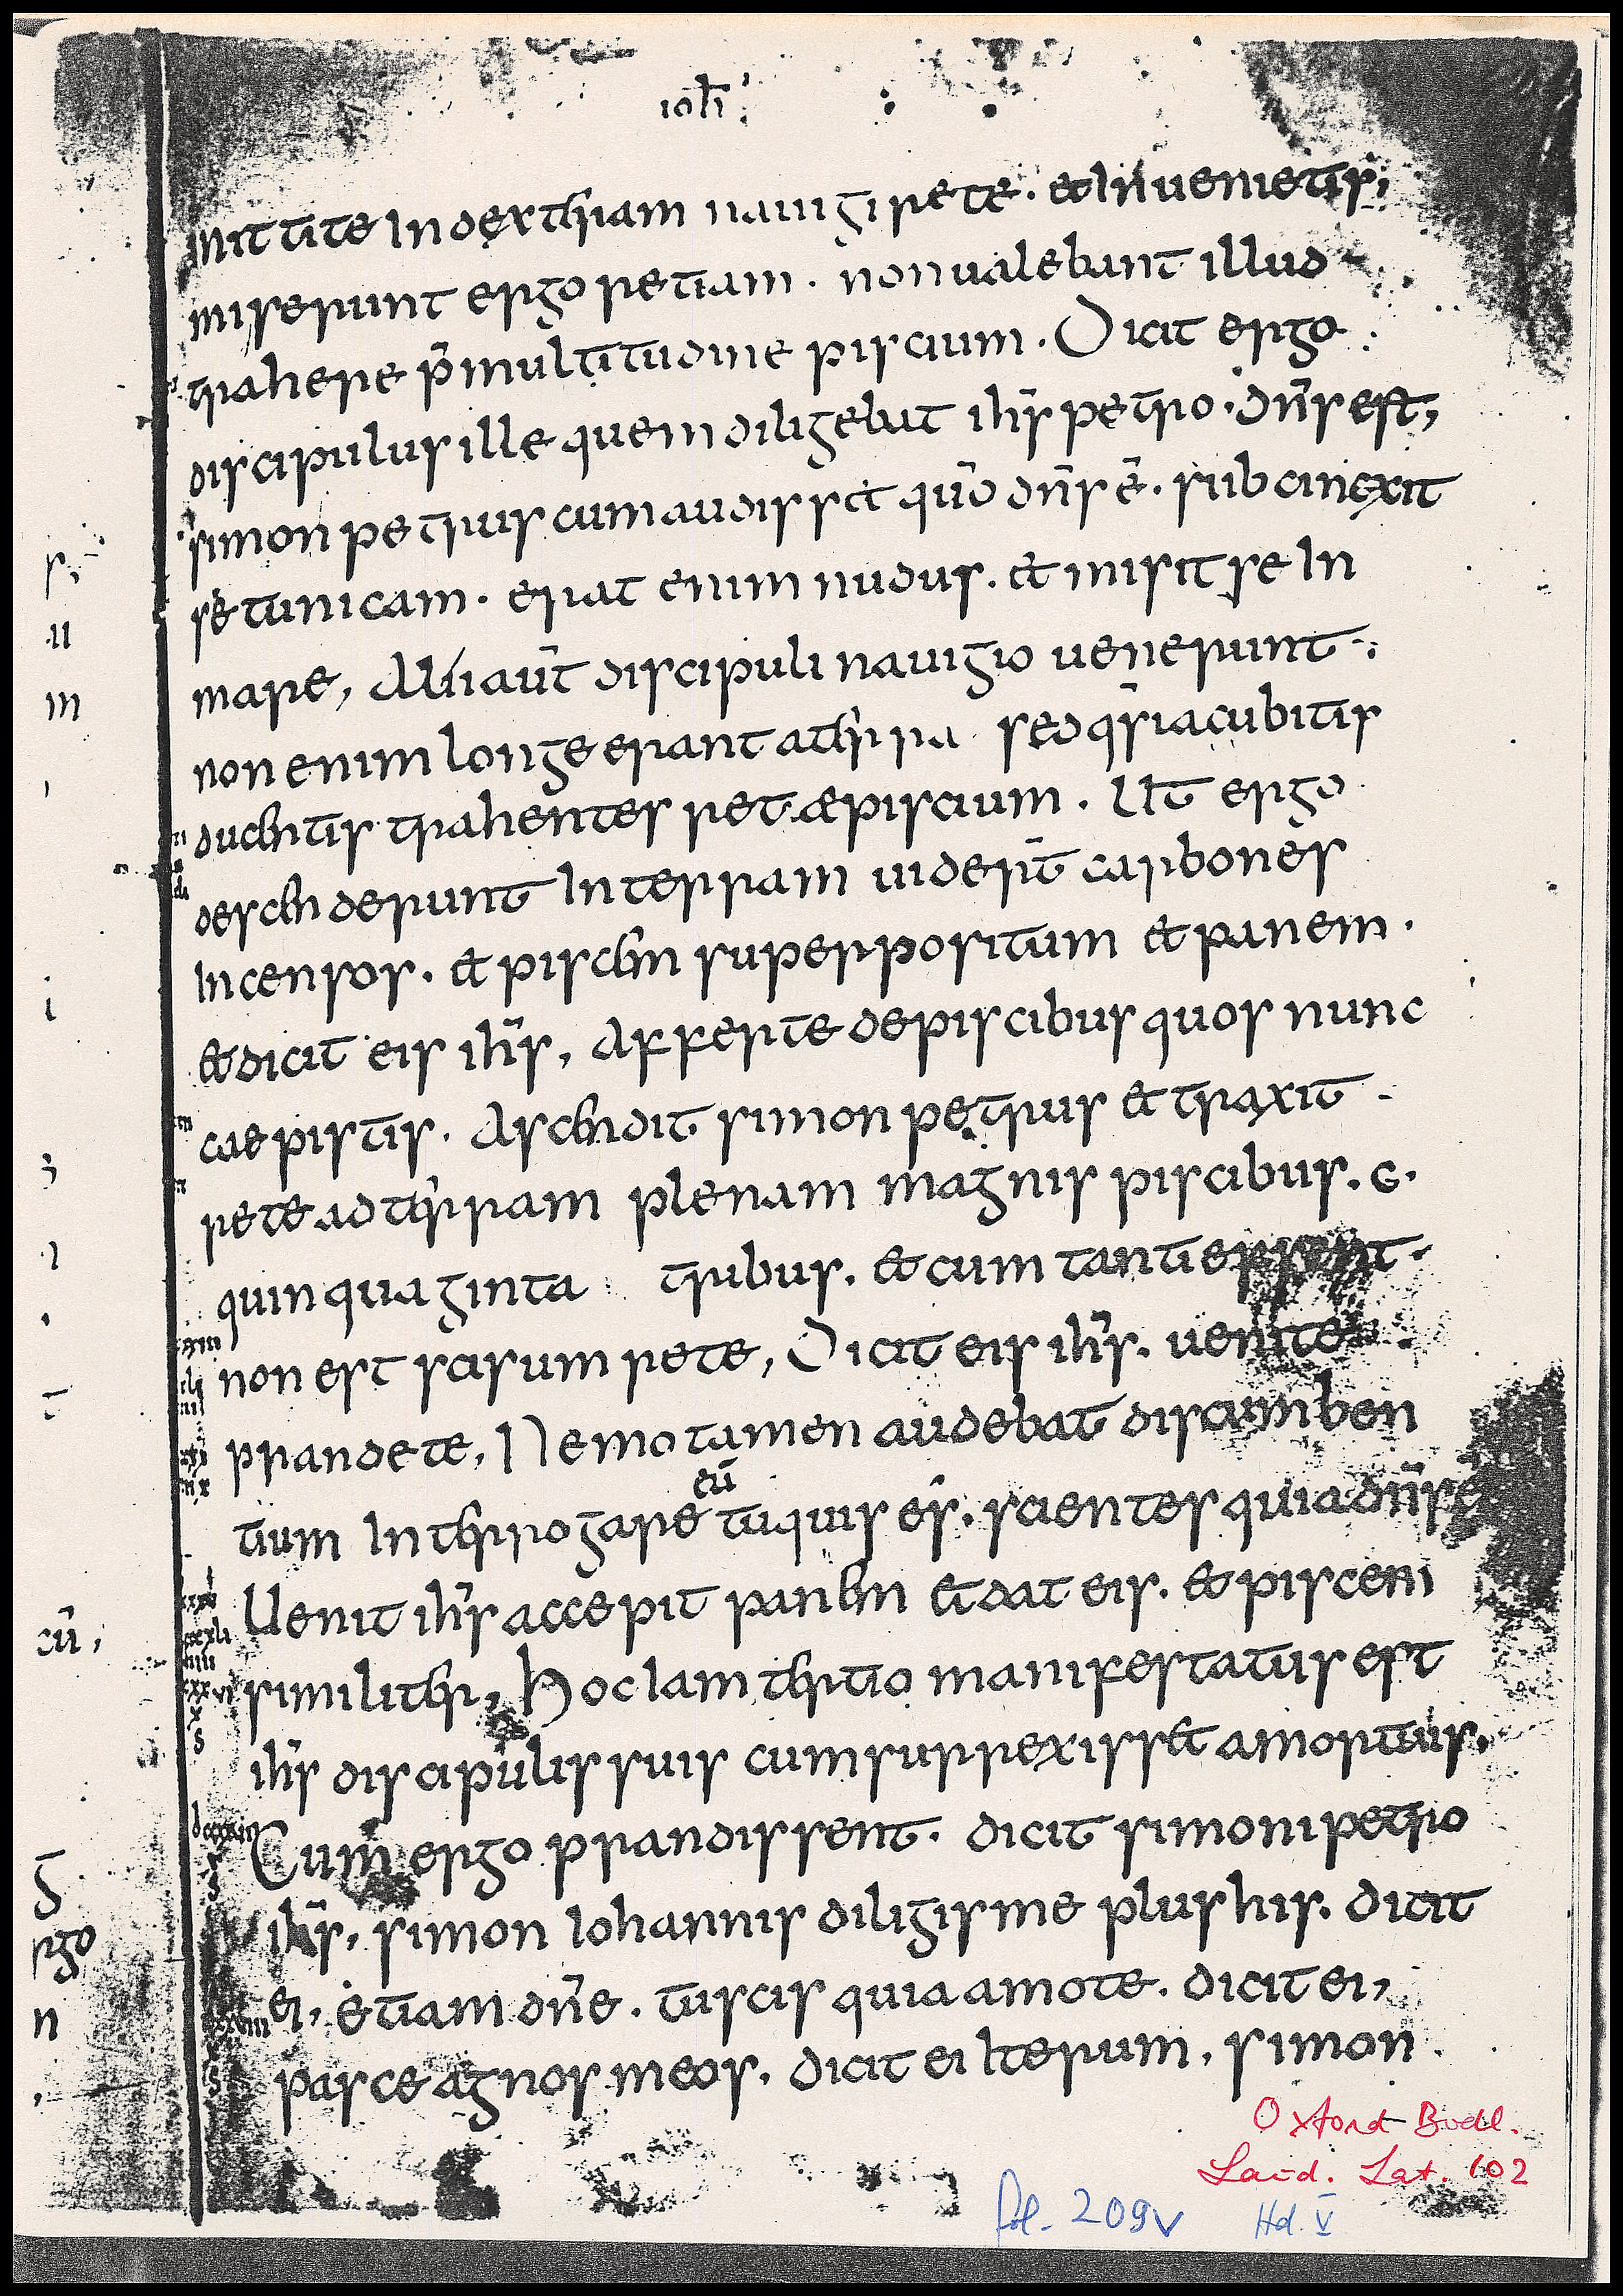 ioh̄
mittite in dexteram nauigi rete· et inuenietis,
miserunt ergo retiam· non ualebant illud
trahere p̄ multitudine piscium· Dicit ergo
discipulus ille quem diligebat ih̄s petro· dn̄s est,
simon petrus cum audissit quō dn̄s ē· subcincxit
se tunicam· erat enim nudus· et misit se in
mare, Alii aūt discipuli nauigio uenerunt
non enim longe erant a terra sed q̄si a cubitis
ducentis trahentes ret æ piscium· Ut ergo
descenderunt in terram uider̄t carbones
incensos· et piscem superpositum et panem·
et dicit eis ih̄s, Afferte de piscibus quos nunc
caepistis· Ascendit simon petrus et traxit
rete ad terram plenam magnis piscibus· c·
quinquaginta tribus· et cum tanti essent
non est scisum rete, Dicit eis ih̄s· uenite
prandete, Nemo tamen audebat discumben
eū
tium interrogare tu quis es· scientes quia dn̄s ē
Uenit ih̄s accepit panem et dat eis· et piscem
similiter, Hoc iam tertio manifestatus est
ih̄s discipulis suis cum surrexisset a mortuis·
Cum ergo prandissent· dicit simoni petro
ih̄s, simon iohannis diligis me plus his· dicit
ei, etiam dn̄e· tu scis quia amo te· dicit ei,
pasce agnos meos, dicit ei iterum, simon
Oxford Bodl.
Laud. Lat. 102
fol. 209v Hd. V